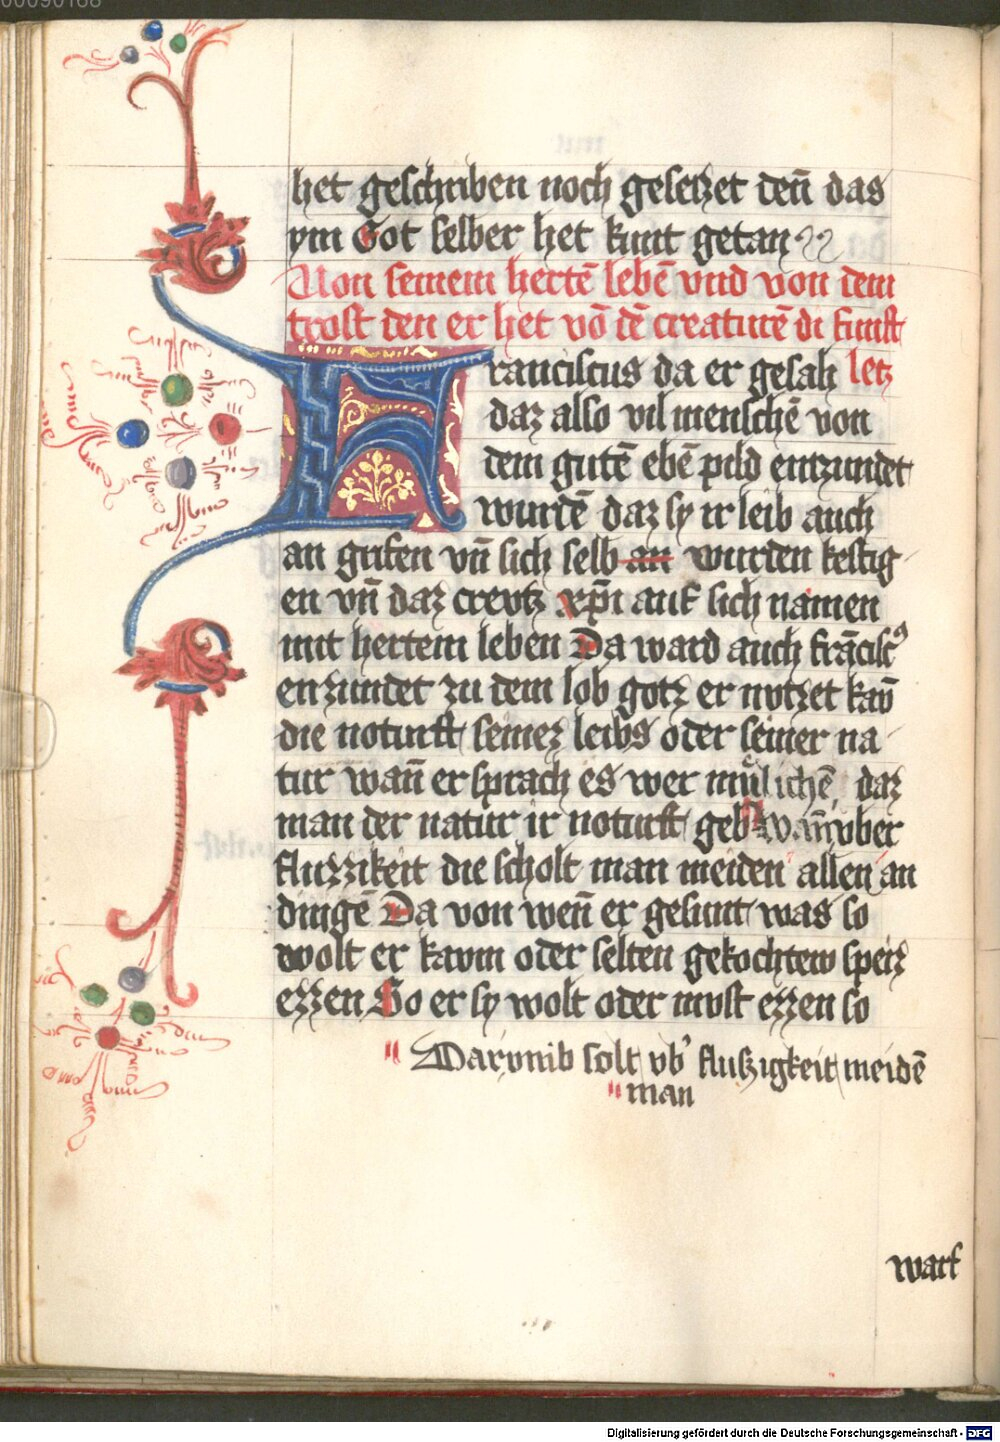 00090168
het geschriben noch geseczet den̄ das
ym Got selber het kunt getan
Uon seinem hertē lebē vnd von dem
trost den er het vō dē creaturē di funft
Franciscus da er gesah letz
daz also vil menschē von
dem gutē ebē pild entzundet
wurdē daz sy ir leib auch
an grifen vn̄ sich selb an wurden kestig
en vn̄ daz crevtz xp̄i auf sich namen
mit hertem leben Da ward auch frācisc⁹
enzundet zu dem lob gotz er nutzet kav̄
die noturft seinez leibs oder seiner na
tur wan̄ er sprach es wer muͤlichē daz
man der natur ir noturft geb wan̄ vber
fluzzikeit die scholt man meiden allen an
dingē Da von wen̄ er gesunt was so
wolt er kavm oder selten gekochtew speiz
ezzen So er sy wolt oder must ezzen so
" Darvmb solt vb' flußzigkeit meidē
" man
warf
Digitalisierung gefördert durch die Deutsche Forschungsgemeinschaft - DFG